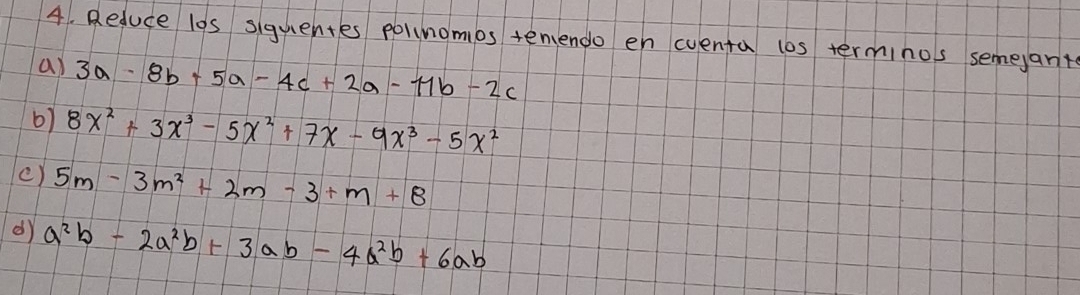 4. Reduce los siguientes polinomios teniendo en cuenta los terminos semejante
a) 3a - 8b + 5a - 4c + 2a - 11b - 2c
b) 8x² + 3x³ - 5x² + 7x - 9x³ - 5x²
c) 5m - 3m² + 2m - 3 + m + 8
d) a²b - 2a²b + 3ab - 4a²b + 6ab